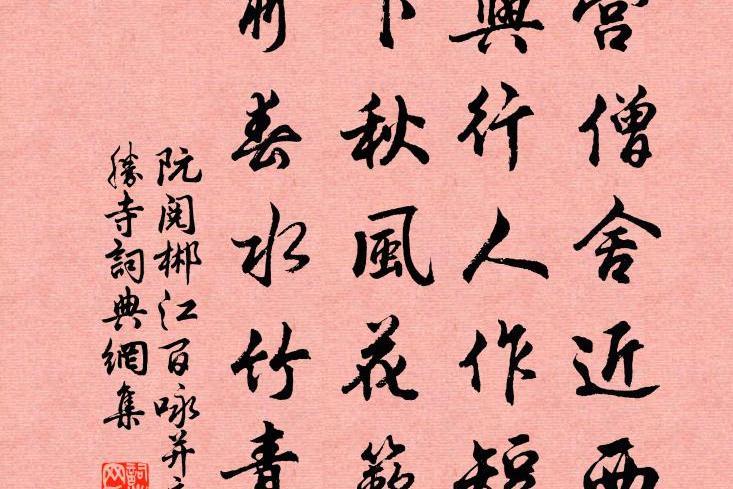 營僧舍近西
與行人作短
下秋風花藪
前春水竹青
阮閱郴江百咏并序
勝寺詞典網集